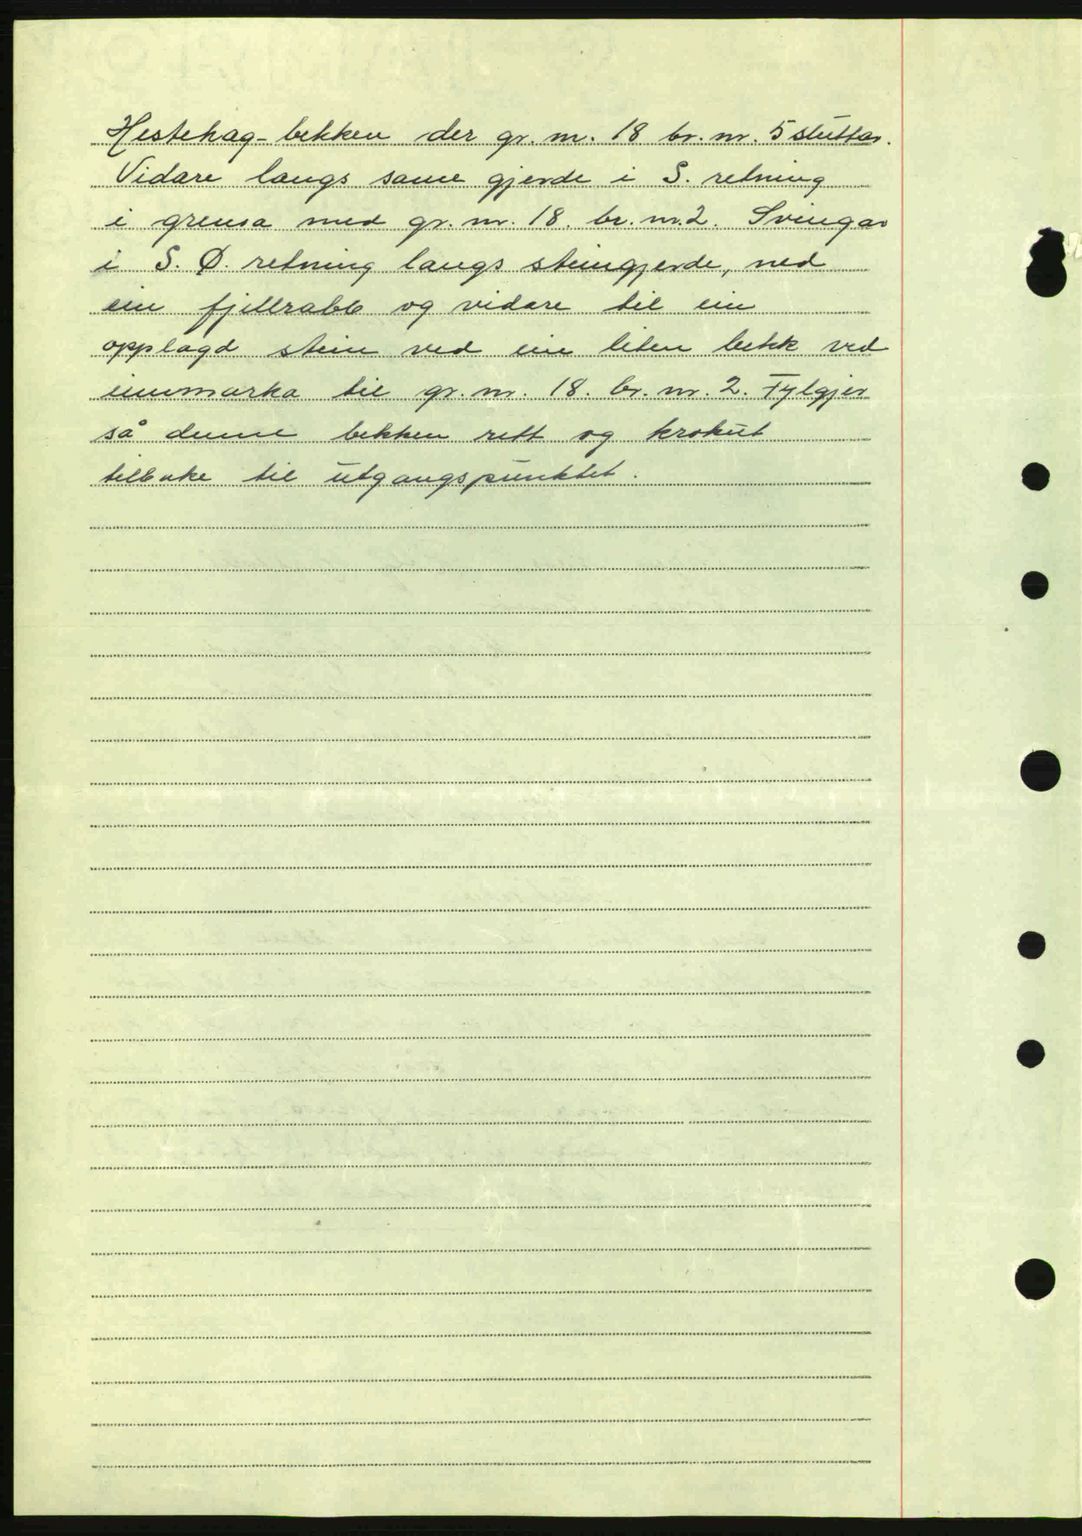 Hestehag-bekken der gr. nr. 18 br. nr. 5 sluttar.
Vidare langs same gjerde i S. retning
i grensa med gr. nr. 18. br. nr. 2. Svingar
i S. Ø. retning langs steingjerde, ned
ein fjellrabb og vidare til ein
opplagd stein ved ein liten bekk ved
innmarka til gr. nr. 18. br. nr. 2. Fylgjer
så denne bekken rett og krokut
tilbake til utgangspunktet.